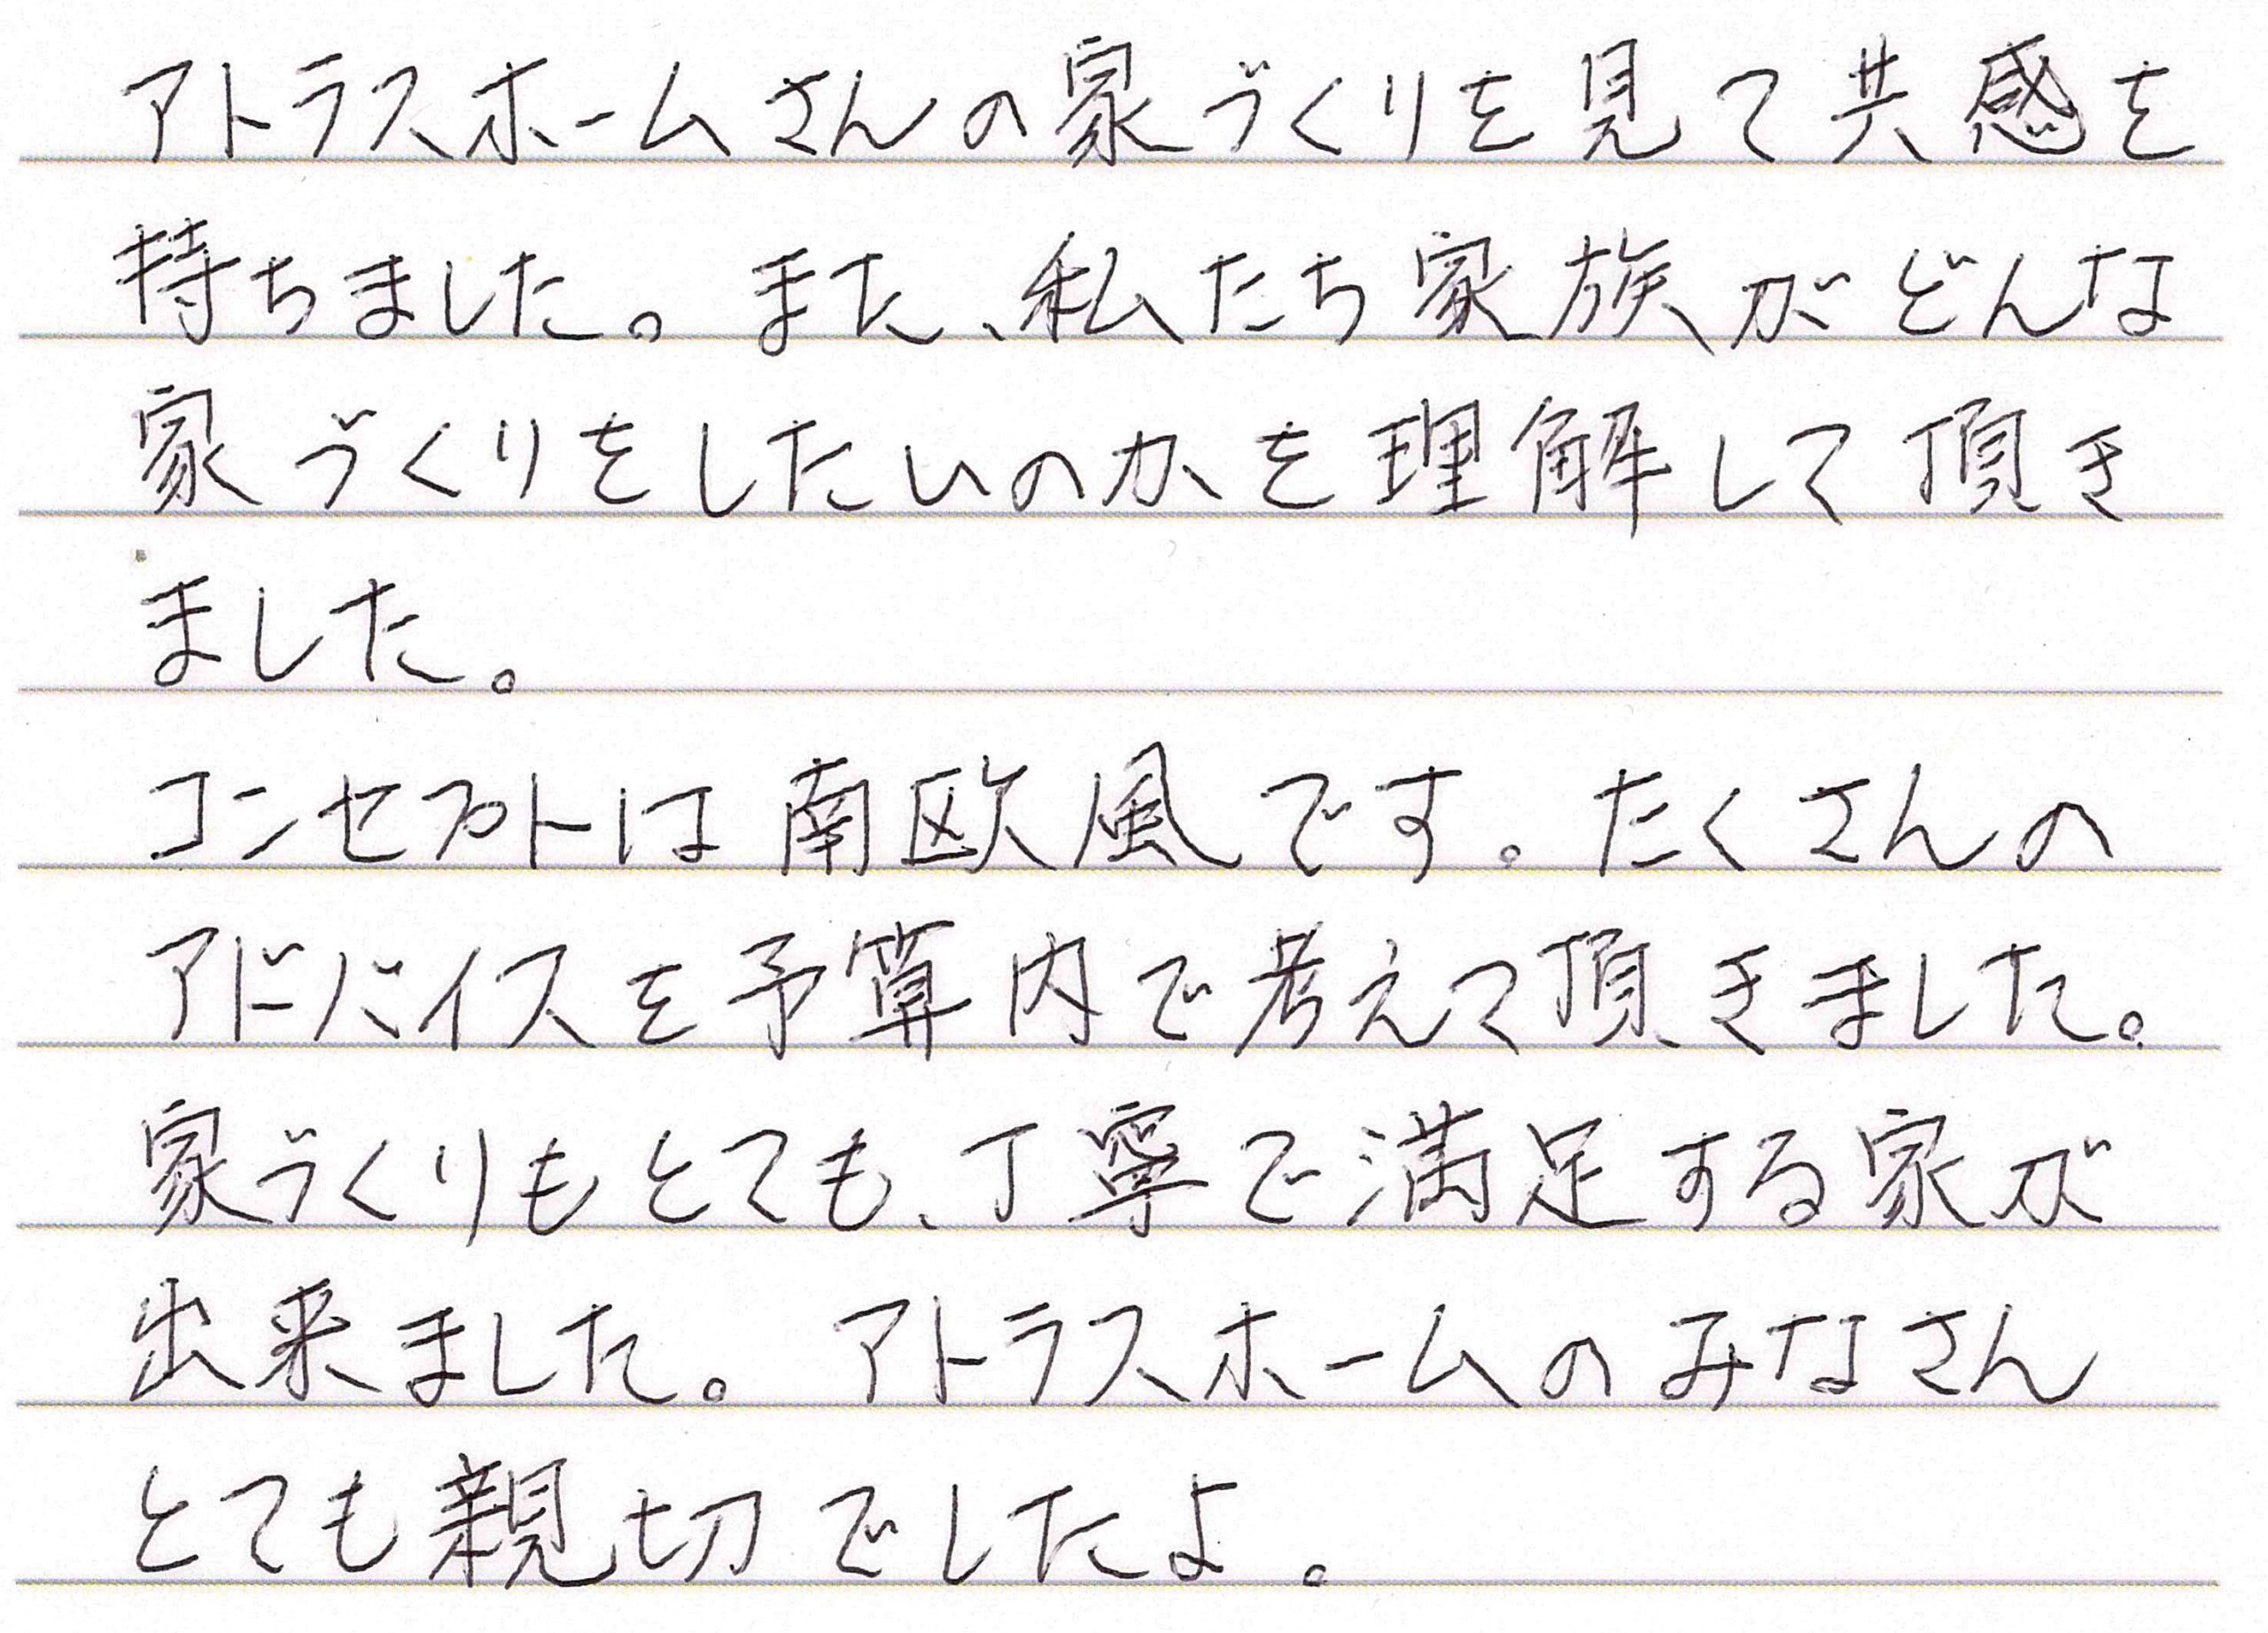 アトラスホームさんの家づくりを見て共感を
持ちました。また、私たち家族がどんな
家づくりをしたいのかを理解して頂き
ました。
コンセプトは南欧風です。たくさんの
アドバイスを予算内で考えて頂きました。
家づくりもとても、丁寧で満足する家が
出来ました。アトラスホームのみなさん
とても親切でしたよ。